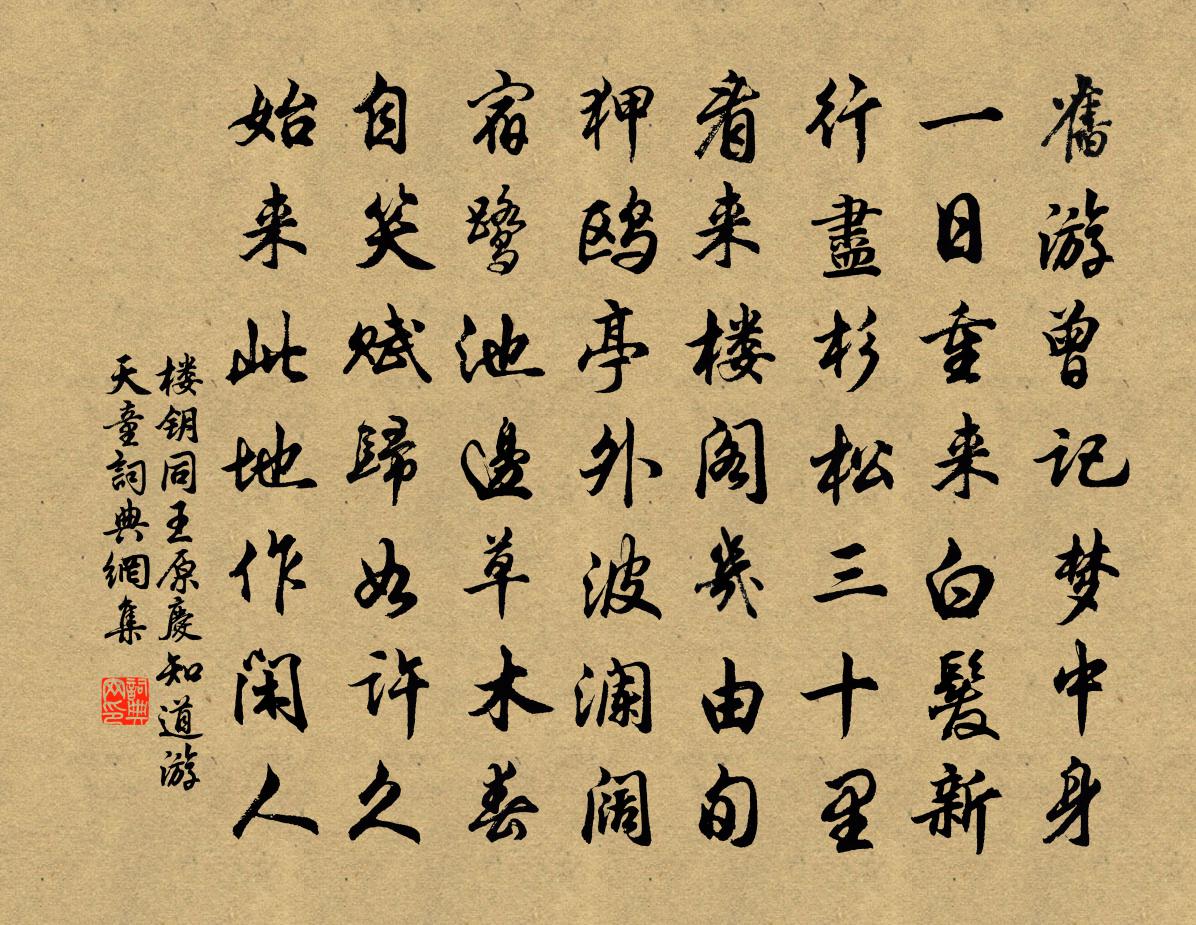 舊游曾记梦中身
一日重来白髮新
行盡杉松三十里
看来楼阁幾由旬
狎鸥亭外波澜阔
宿鹭池邊草木春
自笑赋歸如许久
始来此地作闲人
楼钥同王原慶知道游
天童詞典網集
詞典
网印